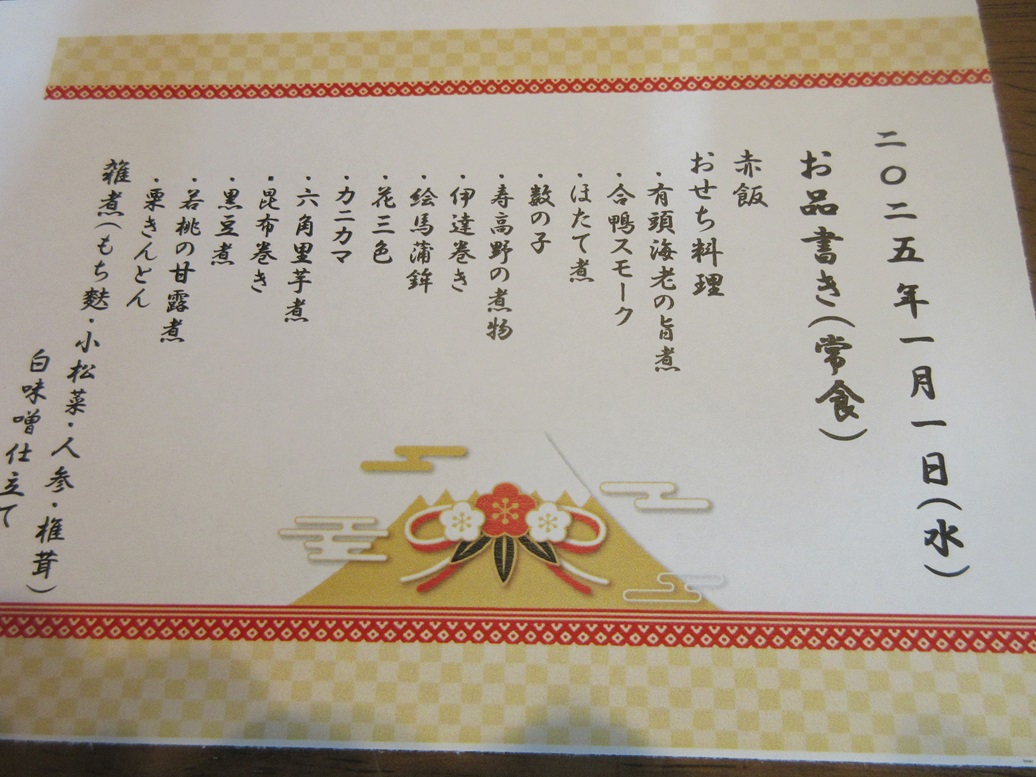 二〇二五年一月一日(水)
お品書き(常食)
赤飯
おせち料理
・有頭海老の旨煮
・合鴨スモーク
・ほたて煮
・数の子
・寿高野の煮物
・伊達巻き
・絵馬蒲鉾
・花三色
・カニカマ
・六角里芋煮
・昆布巻き
・黒豆煮
・若桃の甘露煮
・栗きんとん
雑煮(もち麩・小松菜・人参・椎茸)
白味噌仕立て